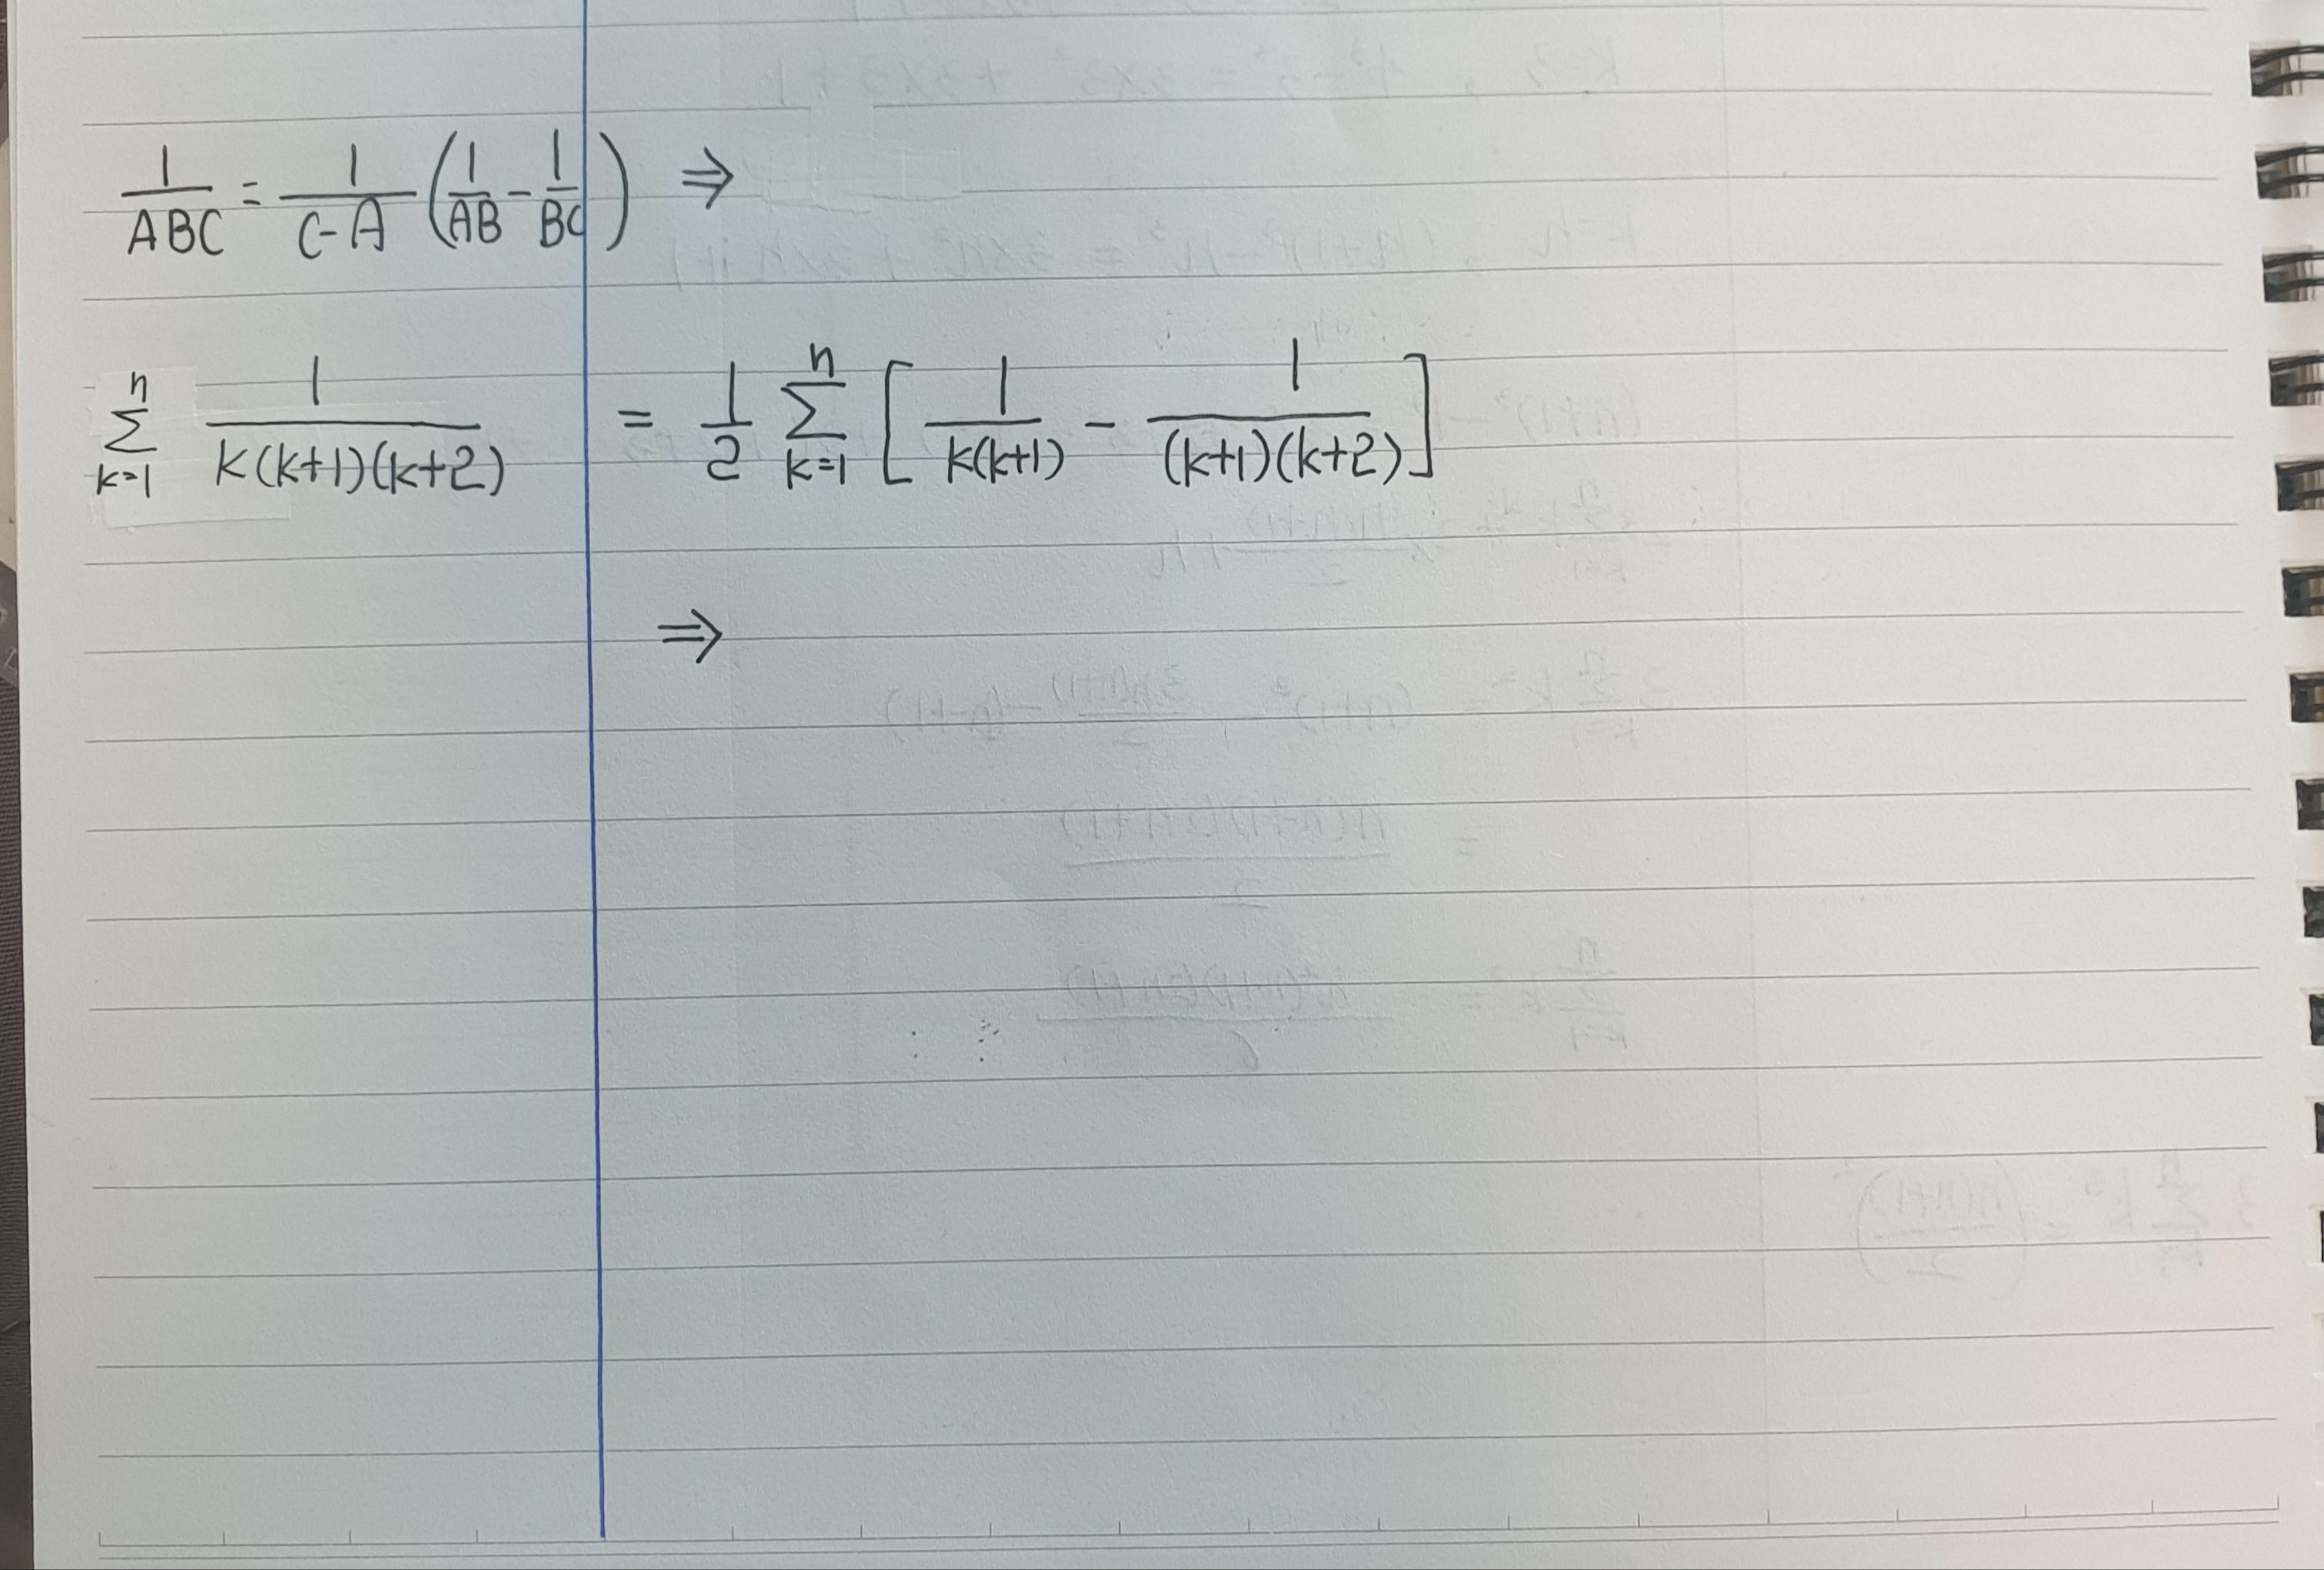 1/ABC = 1/(C-A) (1/AB - 1/BC) ⇒
n∑k=1 1/k(k+1)(k+2) = 1/2 n∑k=1 [1/k(k+1) - 1/(k+1)(k+2)]
⇒